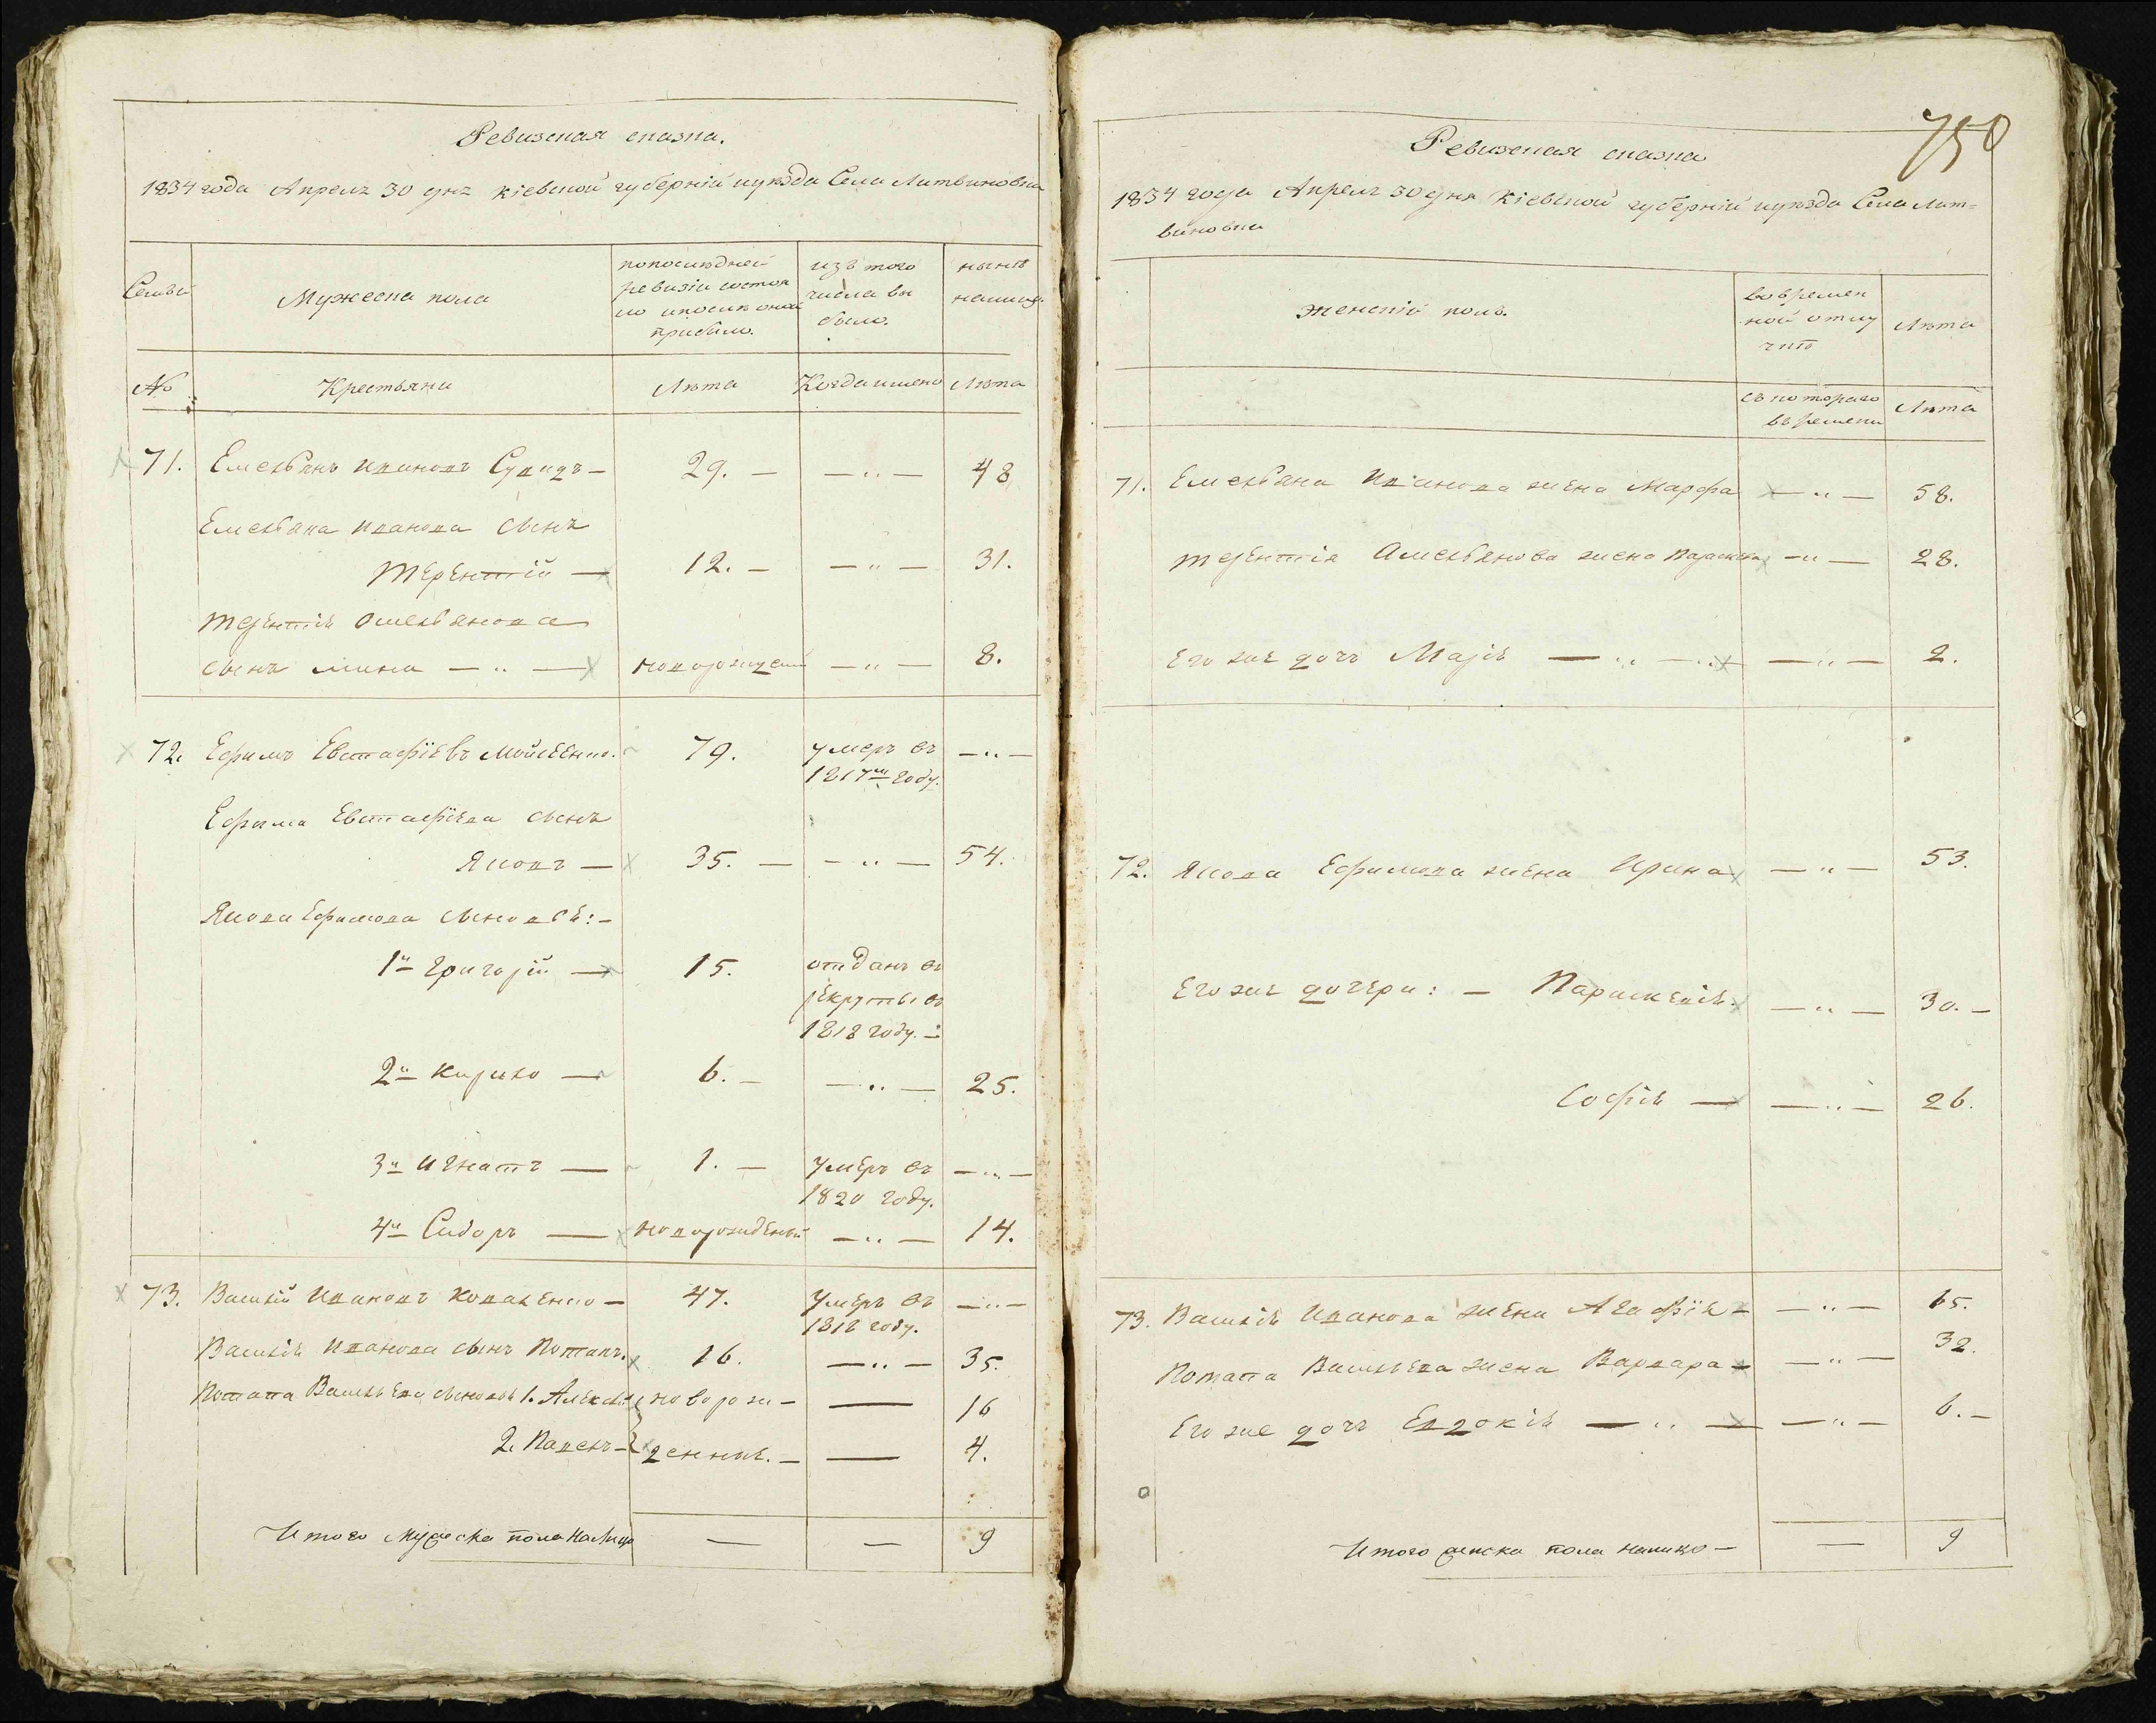 Ревизская сказка.
1834 года Апреля 30 дня Кіевской губерніи и уѣзда Села Литвиновка
Семьи
Мужеска пола
по последней ревизіи состояло и после оной прибыло.
изъ того числа выбыло.
нынѣ налицо
№
Крестьяни
Лѣта
Когда имено
Лѣта
71. Емельянъ Ивановъ — 29. — — „ — 48
Емельяна Иванова сынъ
Терентій — 12. — — „ — 31.
Терентія Омельянова
сынъ Мина — „ — новорожденый — „ — 8.
72. Ефимъ Евстафіевъ Мойсеенко. 79. умеръ въ — „ —
1817м году.
Ефима Евстафіева сынъ
Яковъ — 35. — — „ — 54.
Якова Ефимова сыновья: —
1й Григорій — 15. отданъ въ
рекруты въ
1818 году. —
2й Кирило — 6. — — „ — 25.
3й Игнатъ — 1. — умеръ въ — „ —
1820 году.
4й Сидоръ — новорожденый — „ — 14.
73. Василій Ивановъ Коваленко — 47. умеръ въ — „ —
1818 году.
Василія Иванова сынъ Потапъ. 16. — „ — 35.
Потапа Васильева сыновья 1. Алексѣй новорож— — 16
2. Павелъ — денные. — — 4.
Итого Мужеска пола налицо — — 9
750
Ревизская сказка
1834 года Апреля 30 дня Кіевской губерніи и уѣзда Села Лит=
виновки
Женскій полъ.
во времен
ной отлу
чкѣ
Лѣта
съ котораго
времени
Лѣта
71. Емельяна Иванова жена Марфа — „ — 58.
Терентія Амельянова жена Параскева — „ — 28.
Его же дочь Марія — „ — — „ — 2.
72. Якова Ефимова жена Ирина — „ — 53.
Его же дочери: — Параскевія — „ — 30. —
Софія — — „ — 26.
73. Василія Иванова жена Агафія — — „ — 65.
Потапа Васильева жена Варвара — — „ — 32.
Его же дочь Евдокія — „ — — „ — 6. —
Итого женска пола налицо — — 9